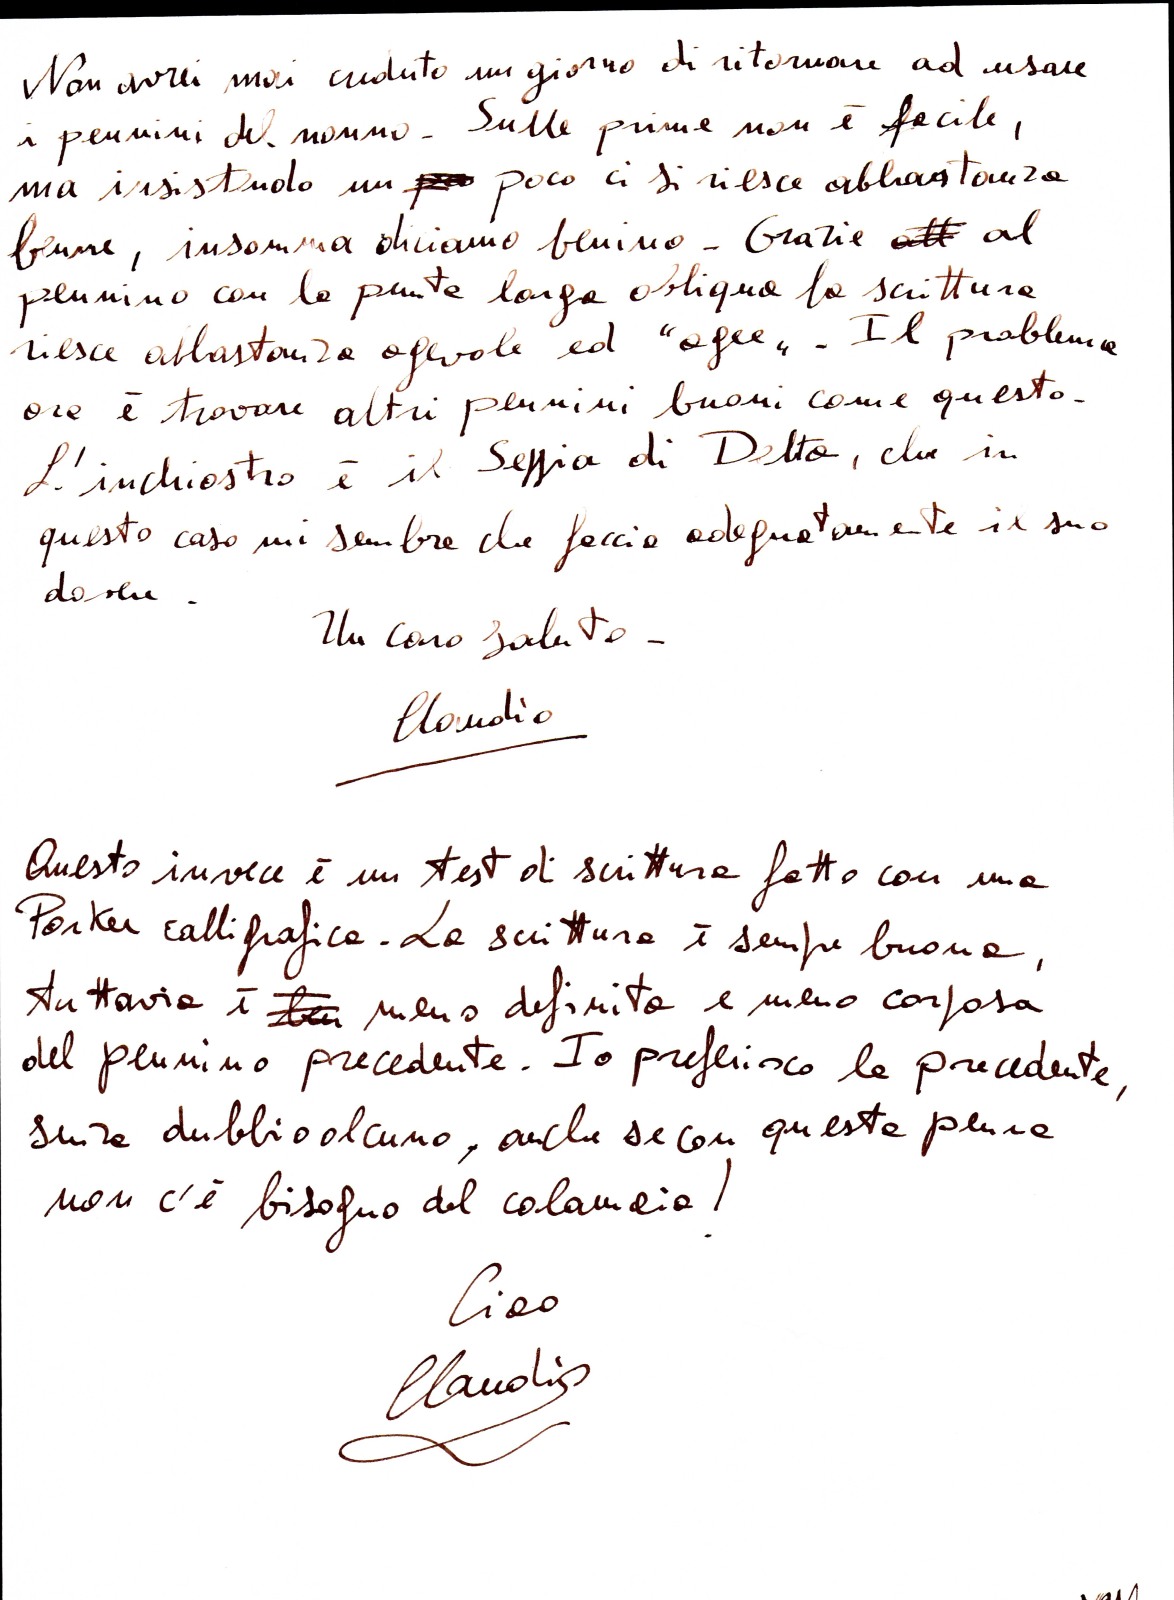 Non avrei mai creduto un giorno di ritornare ad usare
i pennini del nonno - Sulle prime non è facile,
ma insistendo un poco ci si riesce abbastanza
benne, insomma diciamo benino - Grazie al
pennino con la punta larga obliqua la scrittura
riesce abbastanza agevole ed "agee" - Il problema
ora è trovare altri pennini buoni come questo -
L'inchiostro è il Seppia di Delta, che in
questo caso mi sembra che faccia adeguatamente il suo
dovere -
Un caro saluto -
Claudio
Questo invece è un test di scrittura fatto con una
Parker calligrafica - La scrittura è sempre buona,
tuttavia è meno definita e meno corposa
del pennino precedente. Io preferisco la precedente,
senza dubbio alcuno, anche se con questa penna
non c'è bisogno del calamaio!
Ciao
Claudio